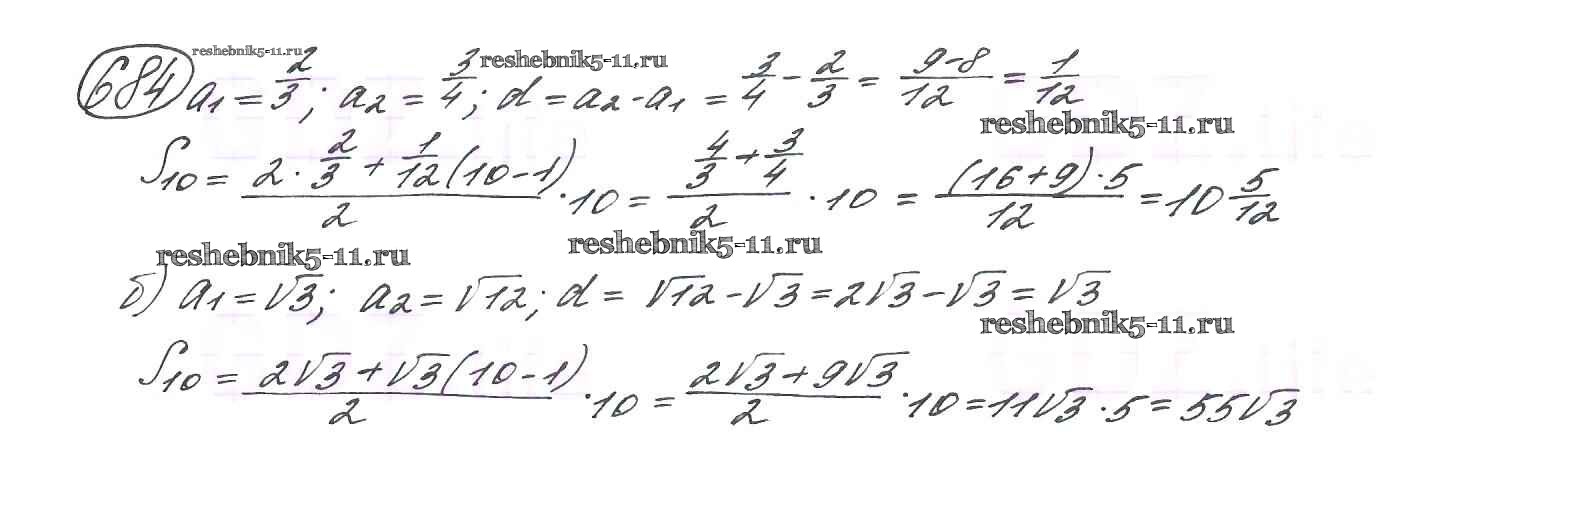 reshebnik5-11.ru
684 a₁ = 2/3; a₂ = 3/4; d = a₂ - a₁ = 3/4 - 2/3 = (9-8)/12 = 1/12
reshebnik5-11.ru
reshebnik5-11.ru
S₁₀ = (2 · 2/3 + 1/12(10-1))/2 · 10 = (4/3 + 3/4)/2 · 10 = ((16+9)·5)/12 = 10 5/12
reshebnik5-11.ru
reshebnik5-11.ru
б) a₁ = √3; a₂ = √12; d = √12 - √3 = 2√3 - √3 = √3
reshebnik5-11.ru
S₁₀ = (2√3 + √3(10-1))/2 · 10 = (2√3 + 9√3)/2 · 10 = 11√3 · 5 = 55√3